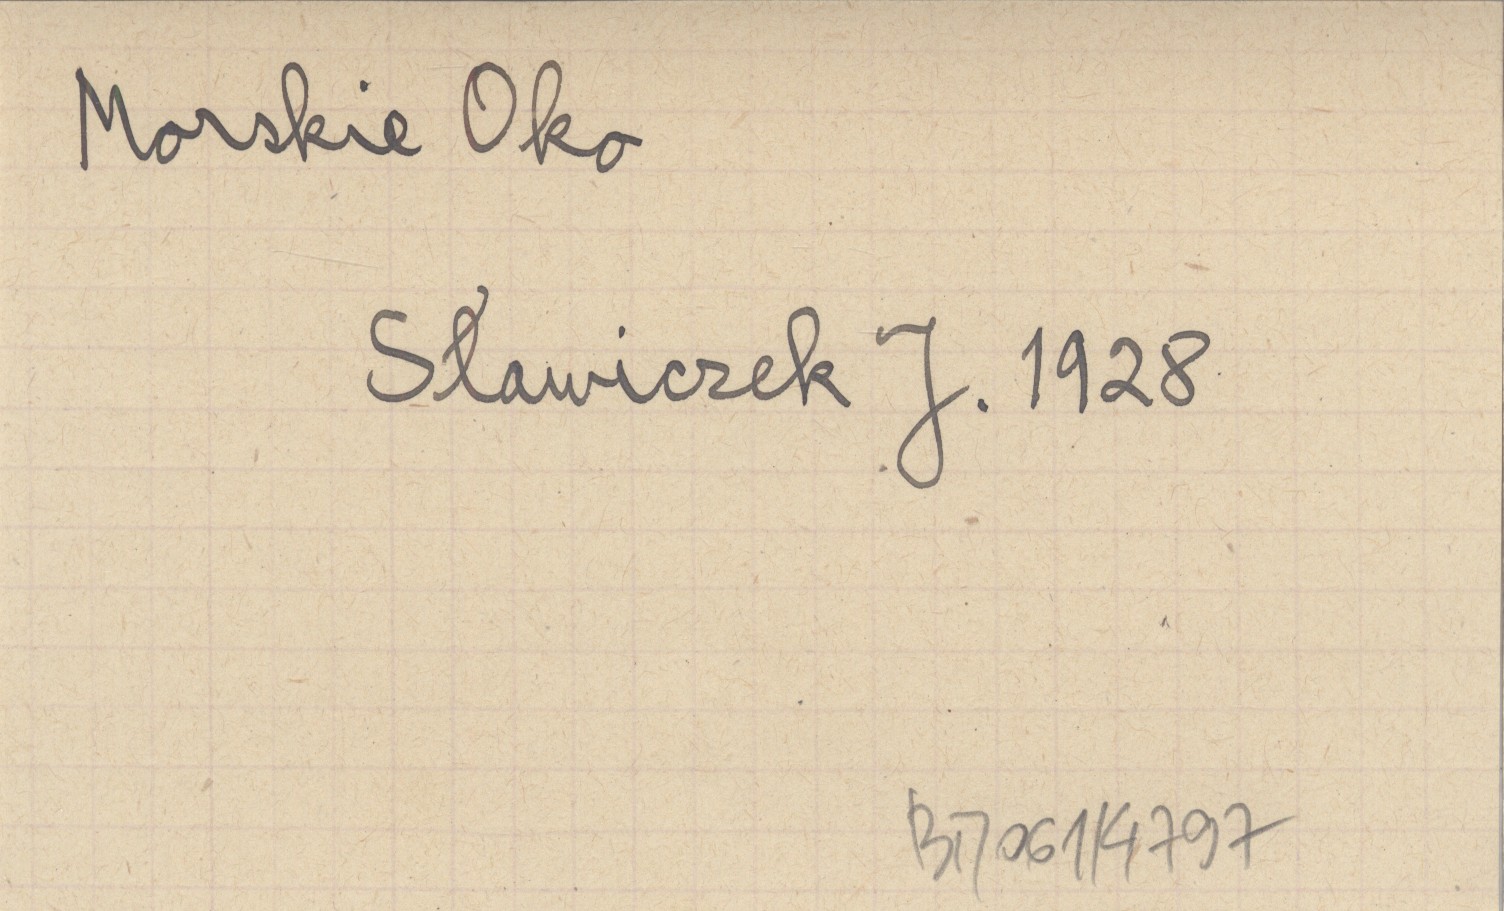 Morskie Oko
Sławiczek J. 1928
BT/061/4797